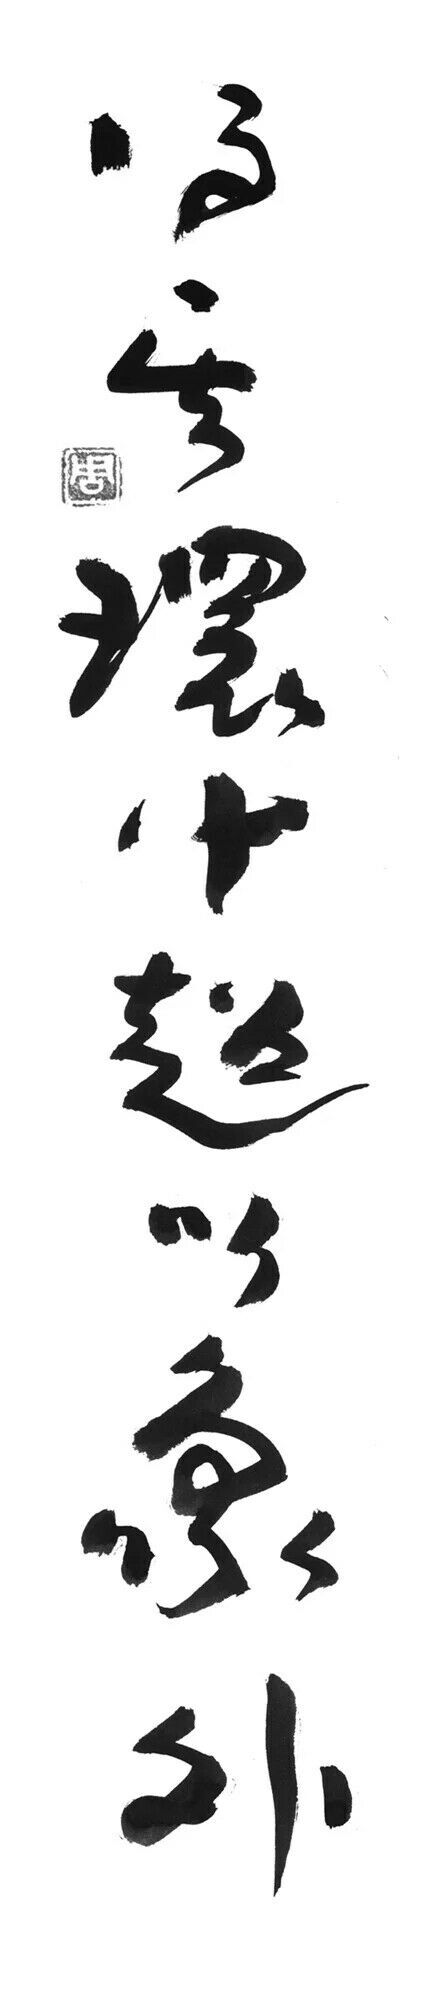 得其環中超以象外
周